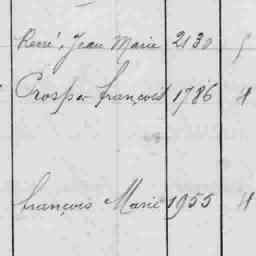 René, Jean Marie 2130
Prosper françois 1786 4
françois Marie 1955 4